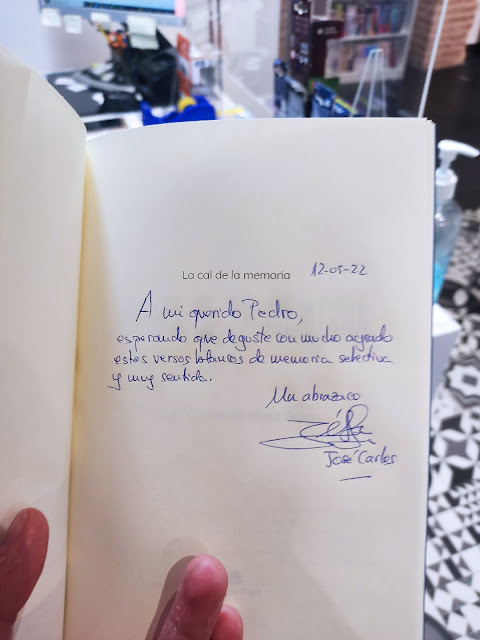 La cal de la memoria
12-05-22
A mi querido Pedro,
esperando que deguste con mucho agrado
estos versos de memoria selectiva
y muy sentida.
Un abrazaco
José Carlos